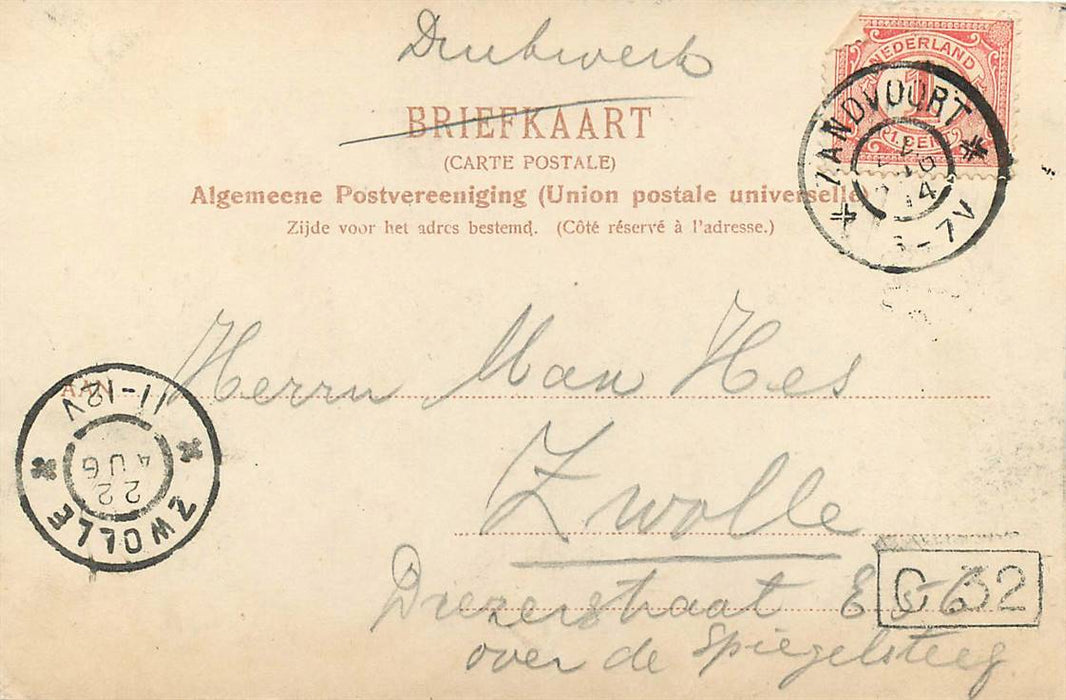 Drukwerk
BRIEFKAART
(CARTE POSTALE)
Algemeene Postvereeniging (Union postale universelle)
Zijde voor het adres bestemd. (Côté réservé à l'adresse.)
NEDERLAND
1
1 CENT
ZANDVOORT
7V
AAN
Herrn Man Hes
Zwolle
Diezerstraat E 56
over de Spiegelsteeg
C 32
11-12V
22
AUG
ZWOLLE